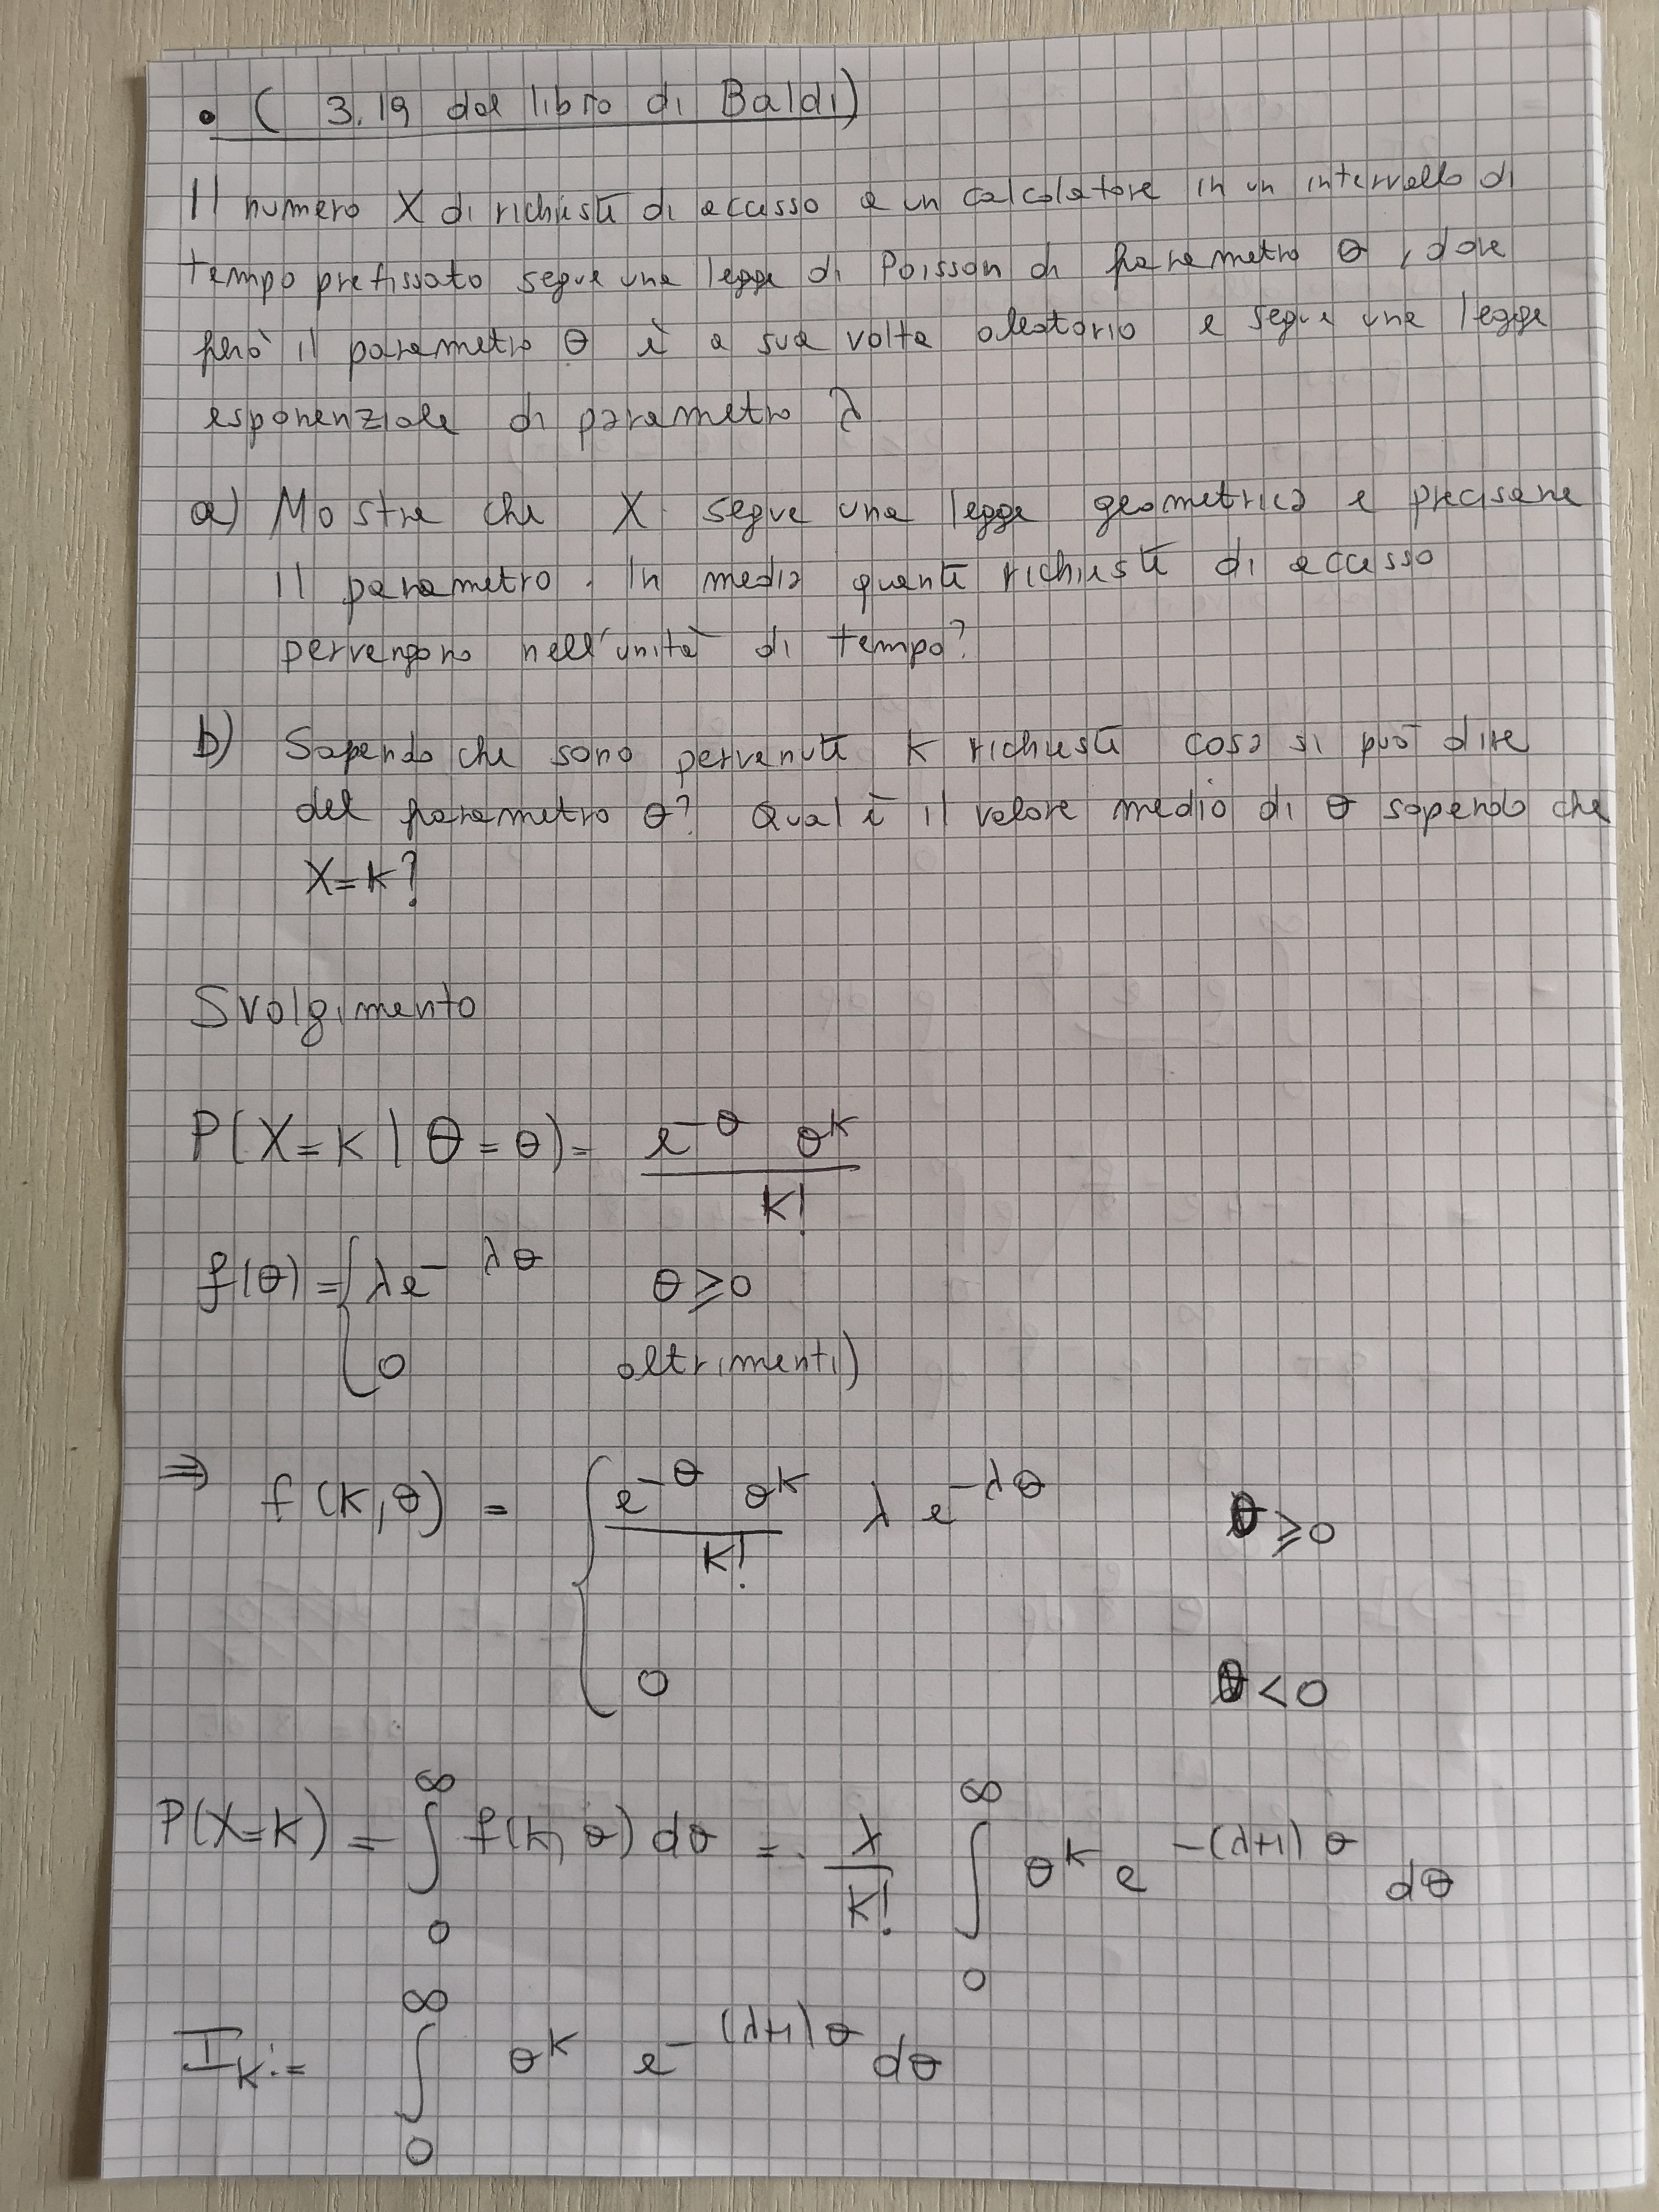 • ( 3.19 dal libro di Baldi)
Il numero X di richieste di accesso a un calcolatore in un intervallo di
tempo prefissato segue una legge di Poisson di parametro θ, dove
però il parametro θ è a sua volta aleatorio e segue una legge
esponenziale di parametro λ
a) Mostra che X segue una legge geometrica e precisane
il parametro. In media quante richieste di accesso
pervengono nell'unità di tempo?
b) Sapendo che sono pervenute k richieste cosa si può dire
del parametro θ? Qual è il valore medio di θ sapendo che
X=k?
Svolgimento
P(X=k | Θ=θ) = e^{-θ} θ^k / k!
f(θ) = { λe^{-λθ} θ≥0
0 altrimenti)
⇒ f(k,θ) = { e^{-θ} θ^k / k! λ e^{-λθ} θ≥0
0 θ<0
P(X=k) = ∫_0^∞ f(k,θ) dθ = λ/k! ∫_0^∞ θ^k e^{-(λ+1)θ} dθ
I_k := ∫_0^∞ θ^k e^{-(λ+1)θ} dθ